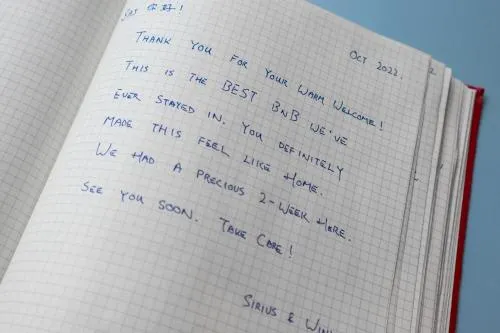 你好!
OCT 2022.
THANK YOU FOR YOUR WARM WELCOME!
THIS IS THE BEST BNB WE'VE
EVER STAYED IN. YOU DEFINITELY
MADE THIS FEEL LIKE HOME.
WE HAD A PRECIOUS 2-WEEK HERE.
SEE YOU SOON. TAKE CARE!
SIRIUS &